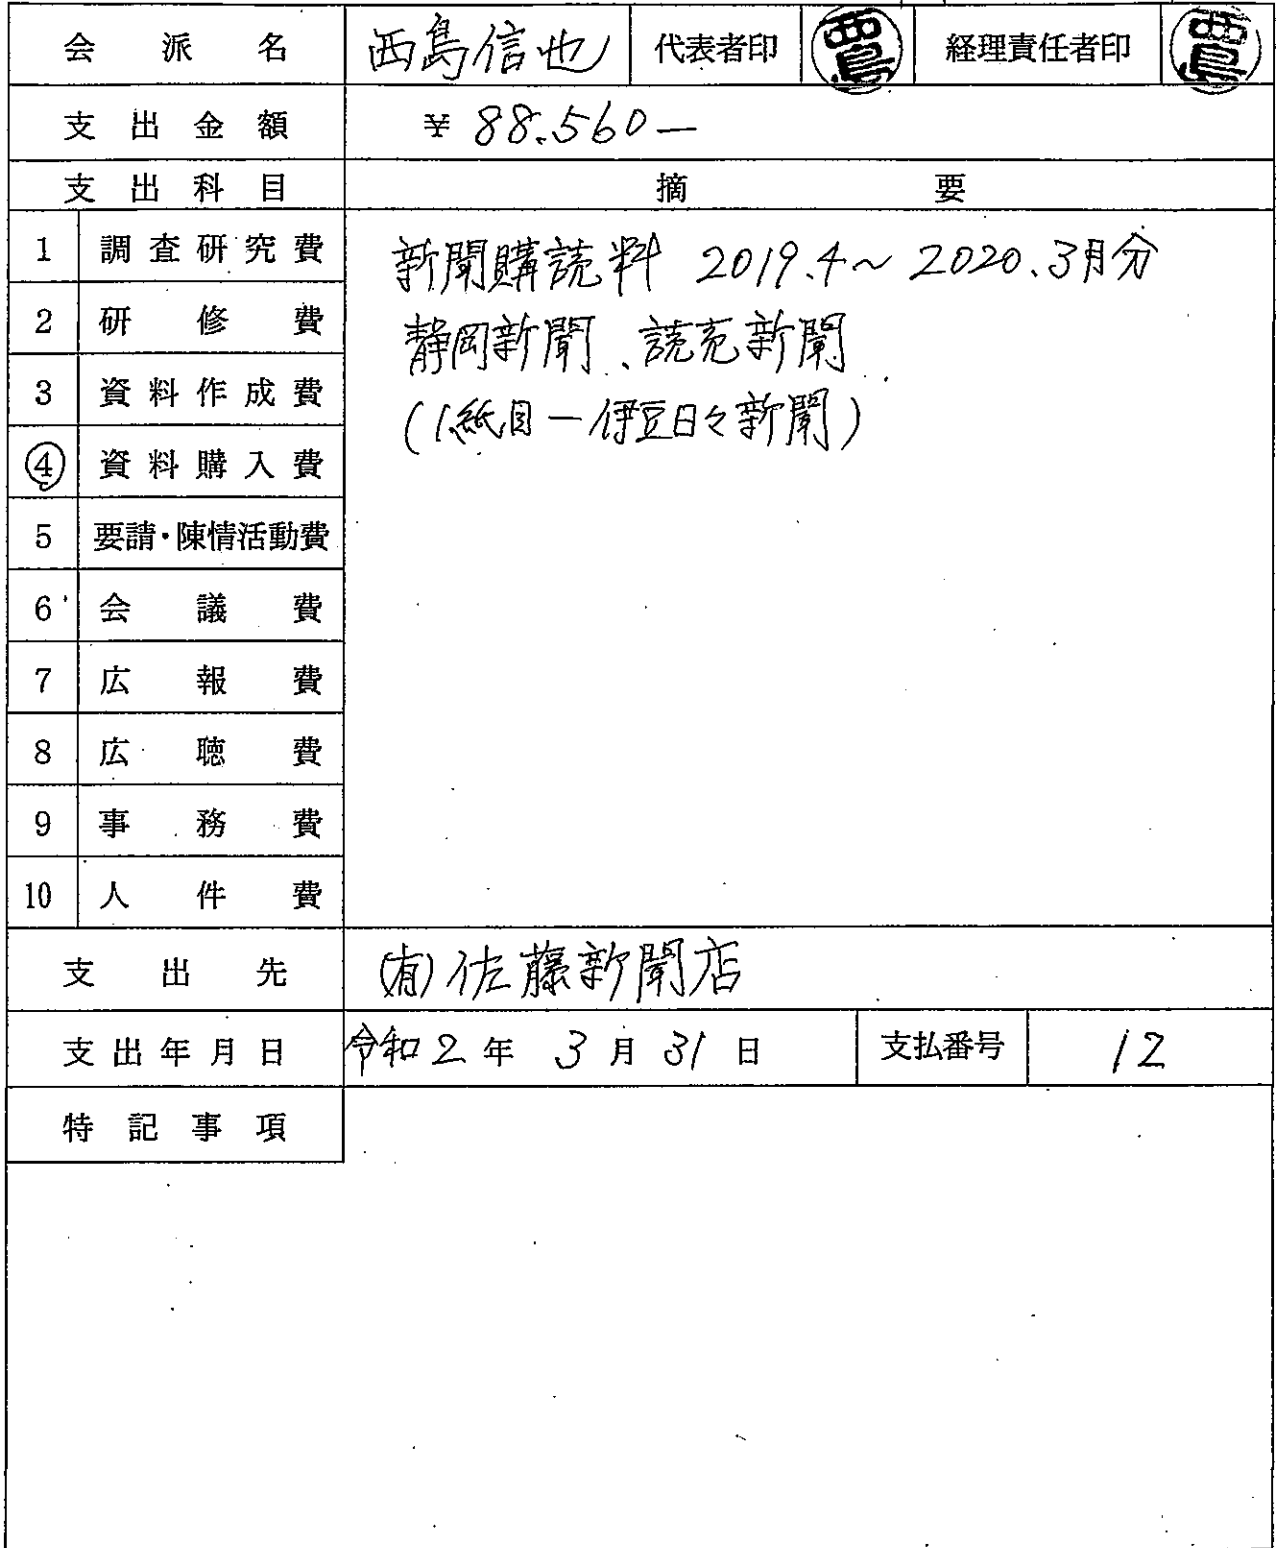 会派名 西島信也 代表者印 西島 経理責任者印 西島
支出金額 ¥88.560—
支出科目 摘要
1 調査研究費
2 研修費
3 資料作成費
④ 資料購入費
5 要請・陳情活動費
6 会議費
7 広報費
8 広聴費
9 事務費
10 人件費
新聞購読料 2019.4~2020.3月分
静岡新聞、読売新聞
(1紙目ー伊豆日々新聞)
支出先 (有)佐藤新聞店
支出年月日 令和2年3月31日 支払番号 12
特記事項